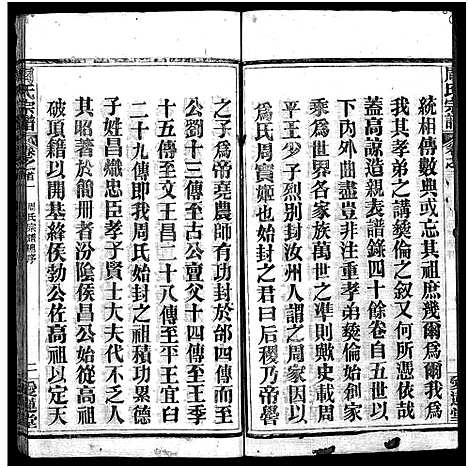 統相傳數典或忘其祖庶幾爾爲爾我
我其孝弟之講彝倫之叙又何所憑依哉
蓋高諒造親表譜錄四十餘卷自古以
下休外曲直非注重孝弟彝倫始創家
乘爲世界各家族萬世之準則歟史載周
平王少子烈封汝州人謂之周家因以
爲氏周實姬姓始封之君曰后稷乃帝嚳
之子爲帝堯農師有功封於邰四傳而至
公劉十三傳至古公亶父十四傳至王季
十五傳至文王昌二十八傳至平王宜臼
二十九傳即我周氏始封之祖積功累德
子姓昌熾忠臣孝子賢士大夫代不乏人
其昭著於簡冊者汾陰侯昌公始從高祖
破項籍以開基絳侯勃公佐高祖以定天
周氏宗譜
卷之首
周氏宗譜總序
愛蓮堂